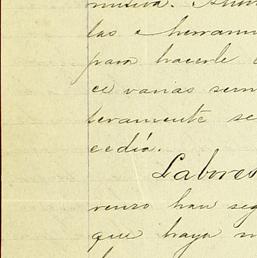 las e herrami
para hacerle
ce varias sem
teramente se
cedia.
Labores
renzo han seg
que haya